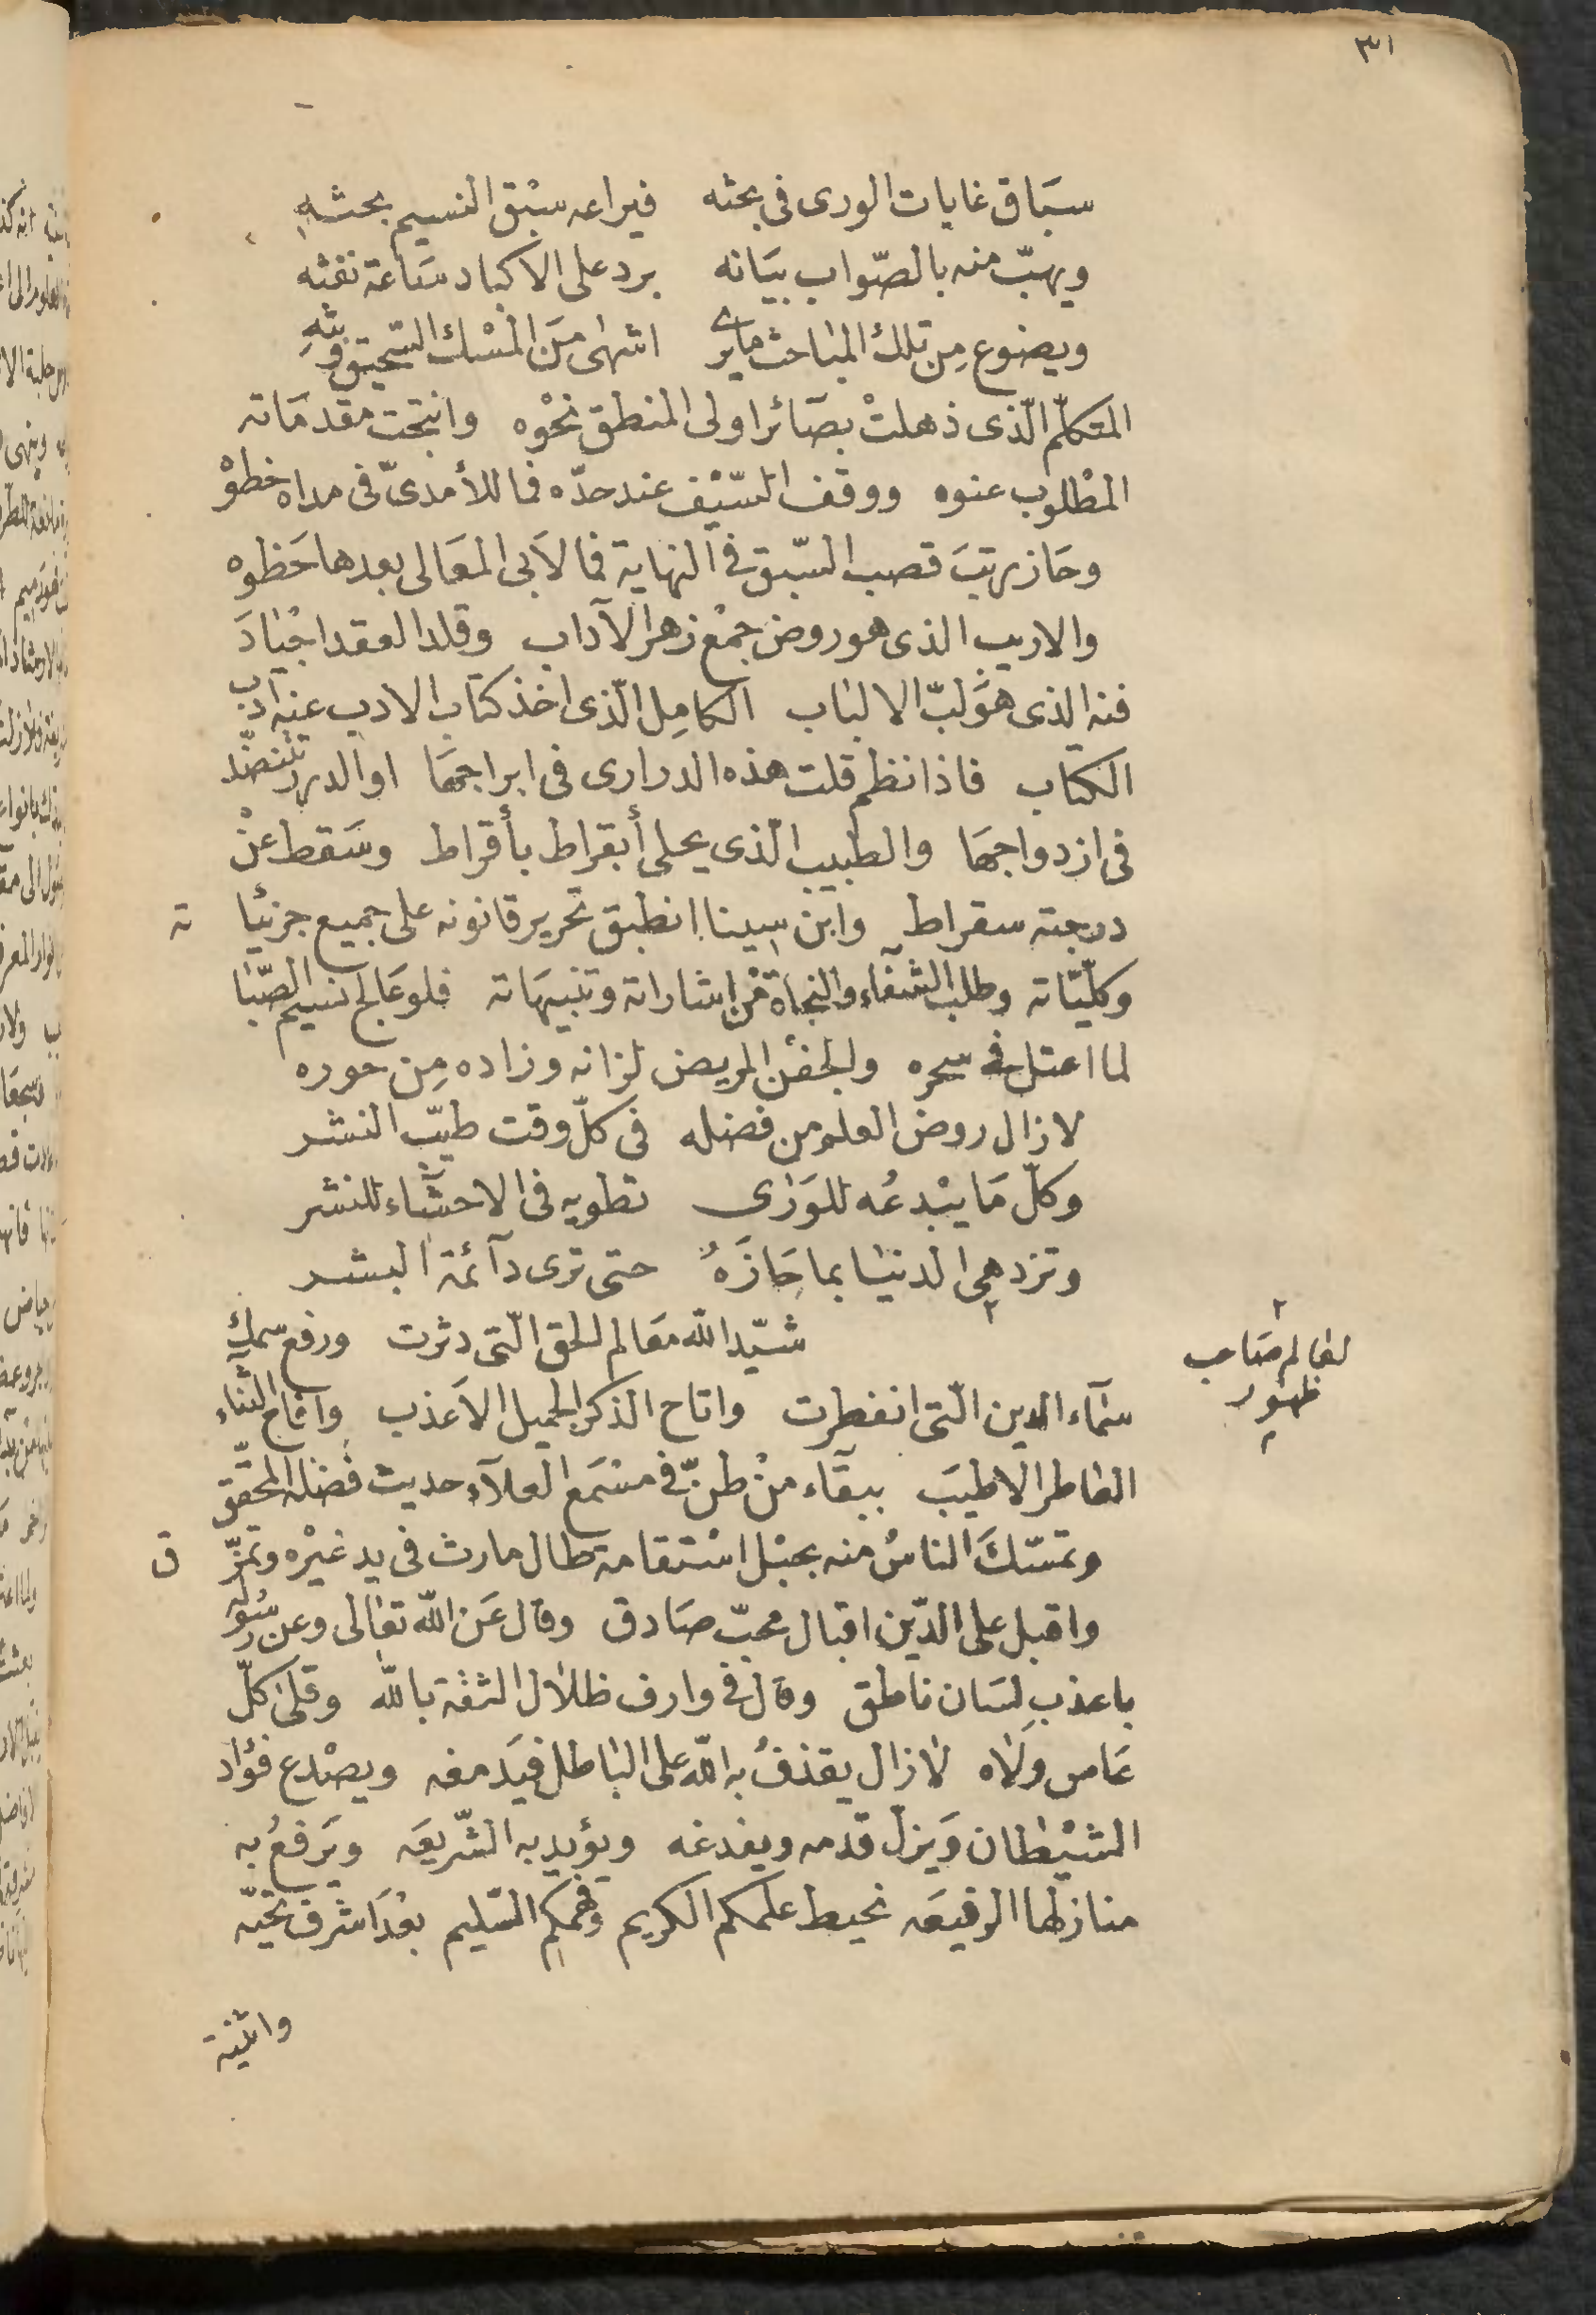 ٣١
سبَاق غايات الورى فى بحثه فيراعه سبْق النسيم بحثهِ
ويهبّ منه بالصّواب بيَانه برد على الاكباد سَاعة نفثه
ويضوع مِن تلك المباحث ما يرى اشهٰى مِنَ المسْك السّحيق وبثهِ
المتكلّم الّذى ذهلتْ بصَائر اولى المنطق نحْوه وانتجت مقدمَاته
المطْلوب عنوه ووقف السّيْف عند حدّه فما للأمدىّ فى مداه خطوْ
وحَاز رتبَ قصب السّبق فى النهاية فما لاَبى المعَالى بعدها حَظوه
والاديب الذى هو روض جمْع زهر الآداب وقلد العقد اجْيادَ
فنه الذى هوَ لبّ الالباب الكامِل الّذى اخذ كتاب الادب عنه ادب
الكتاب فاذا نظم قلت هذه الدرارى فى ابراجهَا او الدرر تتنضّد
فى ازدواجهَا والطبيب الّذى يحلى أبقراط بأقراط وسَقط عنْ
درجته سقراط وابن سينا انطبق تحرير قانونه على جميع جزئيا ته
وكلّيّاته وطلب الشفآء والنجاة مْن اشاراته وتنبيهَاته فلو عَالج نسيم الصّبا
لما اعتل فى سحره ولجفن المريض لزانه وزاده مِن حوره
لا زال روض العلم من فضله فى كلّ وقت طيّب النشر
وكلّ مَا يبْدعُه للوَرٰى تطويه فى الاحشآء للنشر
وتزدهى الدنيا بما حَازَهُ حتى ترى دآئمة البشر
شيّد الله معَالم الحق الّتى دثرت ورفع سمك
لعَالم صَاحب
ظهور
سمآء الدين الّتى انفطرت واتاح الذكر الجميل الاَعذب وافاح الثنآء
العاطر الاطيَب ببقآء منْ طنّ فى مسْمَع العلآء حديث فضله المحقّق
وتمسّكَ الناسُ منه بحبْل اسْتقامة طال مارث فى يد غيْره وتمزّ ق
واقبل على الدّين اقبال محبّ صَادق وقال عَن الله تعٰالى وعن رسُوله
باعذبِ لسَان ناطق وقال فى وارف ظلال الثقة بالله وقلى كلّ
عَاص ولَاه لا زال يقذفُ به الله على البٰاطل فيَدمغه ويصْدع فؤاد
الشيْطان وَيزل قدمه ويفدغه ويؤيد به الشّريعَه ويَرفعُ به
منازلها الرفيعَه نحيط علمكم الكريم وفهمكم السّليم بعْدَ اشرف تحيّه
واثنية